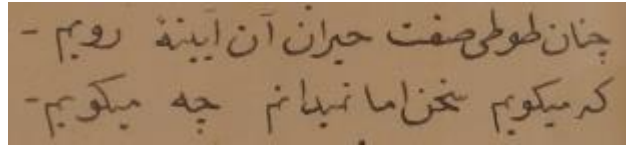 چنان طوطی صفت حیران آن آیینهٔ رویم -
که میگویم سخن اما نمیدانم چه میگویم -